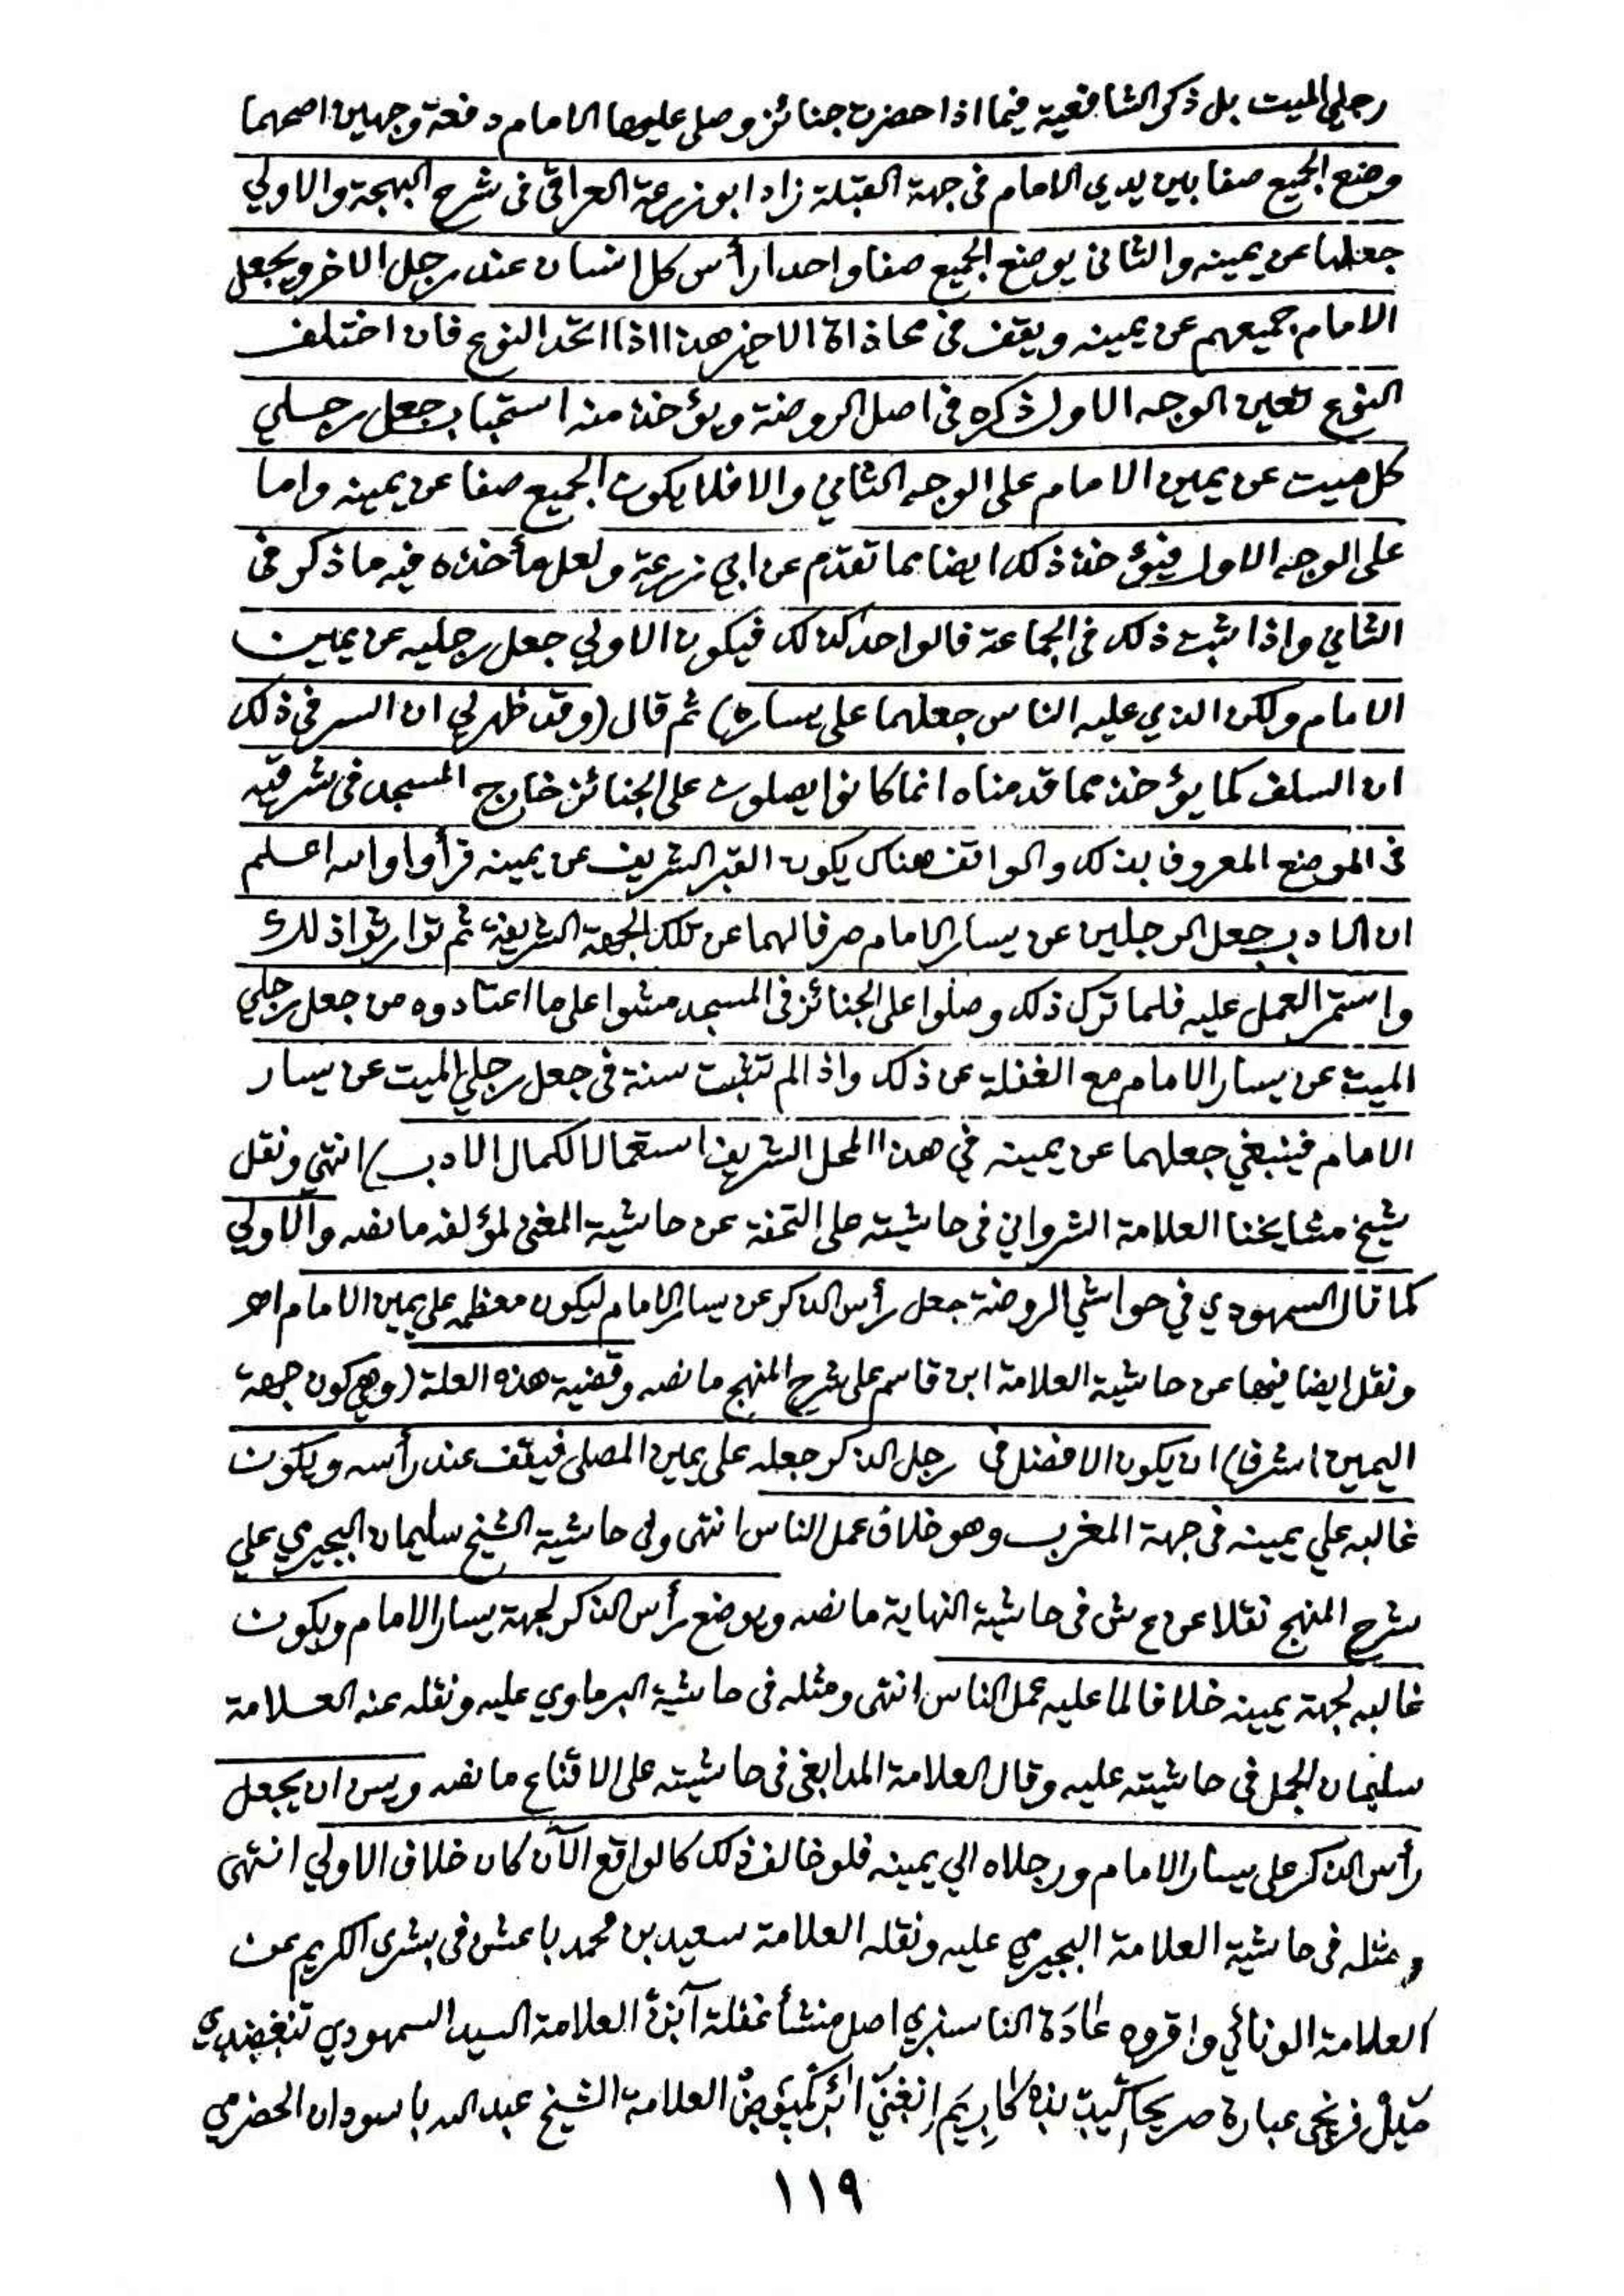 رجلي الميت بل ذكر الشافعية فيما اذا حضرت جنائز وصلى عليها الامام دفعة وجهين اصحهما
وضع الجميع صفا بين يدي الامام في جهة القبلة زاد ابو زرعة العراقي في شرح البهجة والاولي
جعلها عن يمينه والثاني يوضع الجميع صفا واحدا رأس كل انسان عند رجل الاخر ويجعل
الامام جميعهم عن يمينه ويقف في محاذاة الاخير هذا اذا اتحد النوع فان اختلف
النوع تعين الوجه الاول ذكره في اصل الروضة ويؤخذ منه استحباب جعل رجلي
كل ميت عن يمين الامام على الوجه الثاني والا فلا يكون الجميع صفا عن يمينه واما
على الوجه الاول فيؤخذ ذلك ايضا مما تقدم عن ابي زرعة ولعل مأخذه فيه ما ذكر في
الثاني واذا ثبت ذلك في الجماعة فالواحد كذلك فيكون الاولي جعل رجليه عن يمين
الامام ولكن الذي عليه الناس جعلهما على يساره) ثم قال (وقد ظهر لي ان السر في ذلك
ان السلف كما يؤخذ مما قدمناه انما كانوا يصلون على الجنائز خارج المسجد في شرقيه
في الموضع المعروف بذلك والواقف هناك يكون القبر الشريف عن يمينه فرأوا والله اعلم
ان الادب جعل الرجلين عن يسار الامام صرفا لهما عن تلك الجهة الشريفة ثم توارثوا ذلك
واستمر العمل عليه فلما ترك ذلك وصلوا على الجنائز في المسجد مشوا على ما اعتادوه من جعل رجلي
الميت عن يسار الامام مع الغفلة عن ذلك واذا لم تثبت سنة في جعل رجلي الميت عن يسار
الامام فينبغي جعلهما عن يمينه في هذا المحل الشريف استعمالا لكمال الادب) انتهى ونقل
شيخ مشايخنا العلامة الشرواني في حاشيته على التحفة عن حاشية المغني لمؤلفه ما نصه والاولي
كما قال السمهودي في حواشي الروضة جعل رأس الذكر عن يسار الامام ليكون معظمه على يمين الامام اهـ
ونقل ايضا فيها عن حاشية العلامة ابن قاسم على شرح المنهج ما نصه وقضية هذه العلة (وهي كون جهة
اليمين اشرف) ان يكون الافضل في رجل الذكر جعله على يمين المصلى فيقف عند رأسه ويكون
غالبه علي يمينه في جهة المغرب وهو خلاف عمل الناس انتهى وفي حاشية الشيخ سليمان البجيرمي علي
شرح المنهج نقلا عن ع ش في حاشية النهاية ما نصه ويوضع رأس الذكر لجهة يسار الامام ويكون
غالبه لجهة يمينه خلافا لما عليه عمل الناس انتهى ومثله في حاشية البرماوي عليه ونقله عنه العلامة
سليمان الجمل في حاشيته عليه وقال العلامة المدابغي في حاشيته على الاقناع ما نصه ويسن ان يجعل
رأس الذكر على يسار الامام ورجلاه الي يمينه فلو خالف ذلك كالواقع الآن كان خلاف الاولي انتهى
ومثله في حاشية العلامة البجيرمي عليه ونقله العلامة سعيد بن محمد باعشن في بشرى الكريم عن
العلامة الونائي واقروه عادة الناسنري اصل منشأ غفلة آنزة العلامة السيد السمهودي
عبارة صريحا العلامة الشيخ عبد الله باسودان الحضرمي
١١٩